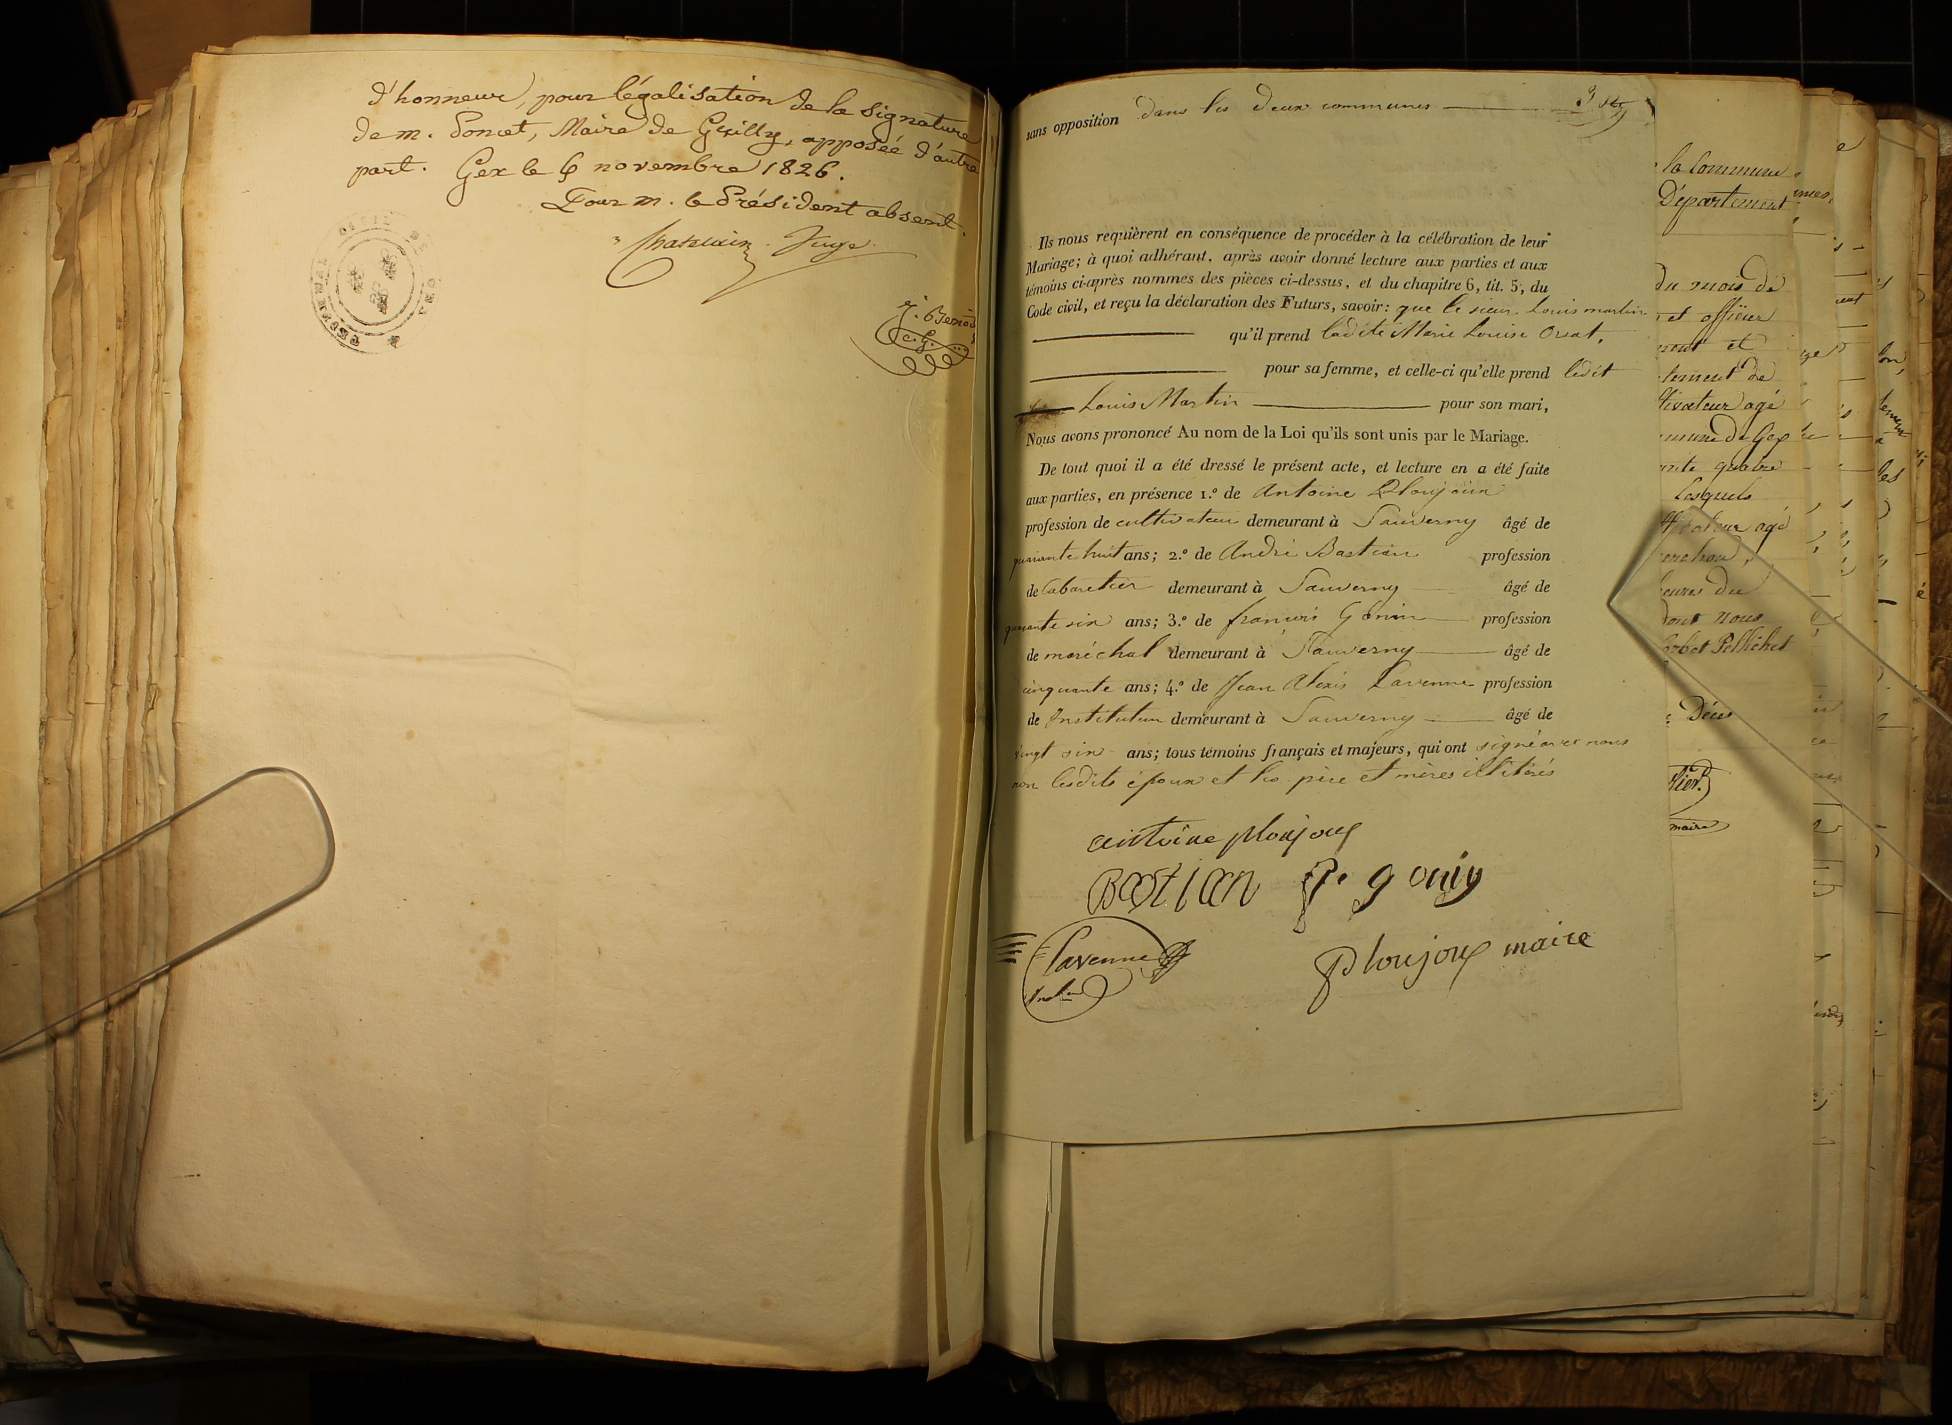 d'honneur, pour légalisation de la signature
de m. Poncet, Maire de Grilly, apposée d'autre
part. Gex le 6 novembre 1826.
Pour m. le Président absent.
Chatelain Juge
TRIBUNAL CIVIL DE GEX
c. g.
sans opposition dans les deux communes
Ils nous requièrent en conséquence de procéder à la célébration de leur
Mariage; à quoi adhérant, après avoir donné lecture aux parties et aux
témoins ci-après nommés des pièces ci-dessus, et du chapitre 6, tit. 5, du
Code civil, et reçu la déclaration des Futurs, savoir: que le sieur Louis martin
qu'il prend ladite Marie Louise Orsat,
pour sa femme, et celle-ci qu'elle prend ledit
Louis Martin pour son mari,
Nous avons prononcé Au nom de la Loi qu'ils sont unis par le Mariage.
De tout quoi il a été dressé le présent acte, et lecture en a été faite
aux parties, en présence 1.º de Antoine Ploujoux
profession de cultivateur demeurant à Sauverny âgé de
quarante huit ans; 2.º de André Bastian profession
de Cabaretier demeurant à Sauverny âgé de
quarante six ans; 3.º de françois Gonin profession
de maréchal demeurant à Sauverny âgé de
cinquante ans; 4.º de Jean Alexis Lavenne profession
de Instituteur demeurant à Sauverny âgé de
vingt six ans; tous témoins français et majeurs, qui ont signé avec nous
non lesdits époux et les père et mères illitérés
antoine ploujoux
BASTIAN f. gonin
Lavenne
Ploujoux maire
la Commune
Département
du mois de
et officier
et
de
agé
de Gex
quatre
Lesquels
agé
du
nous
Pellichet
Décès
maire